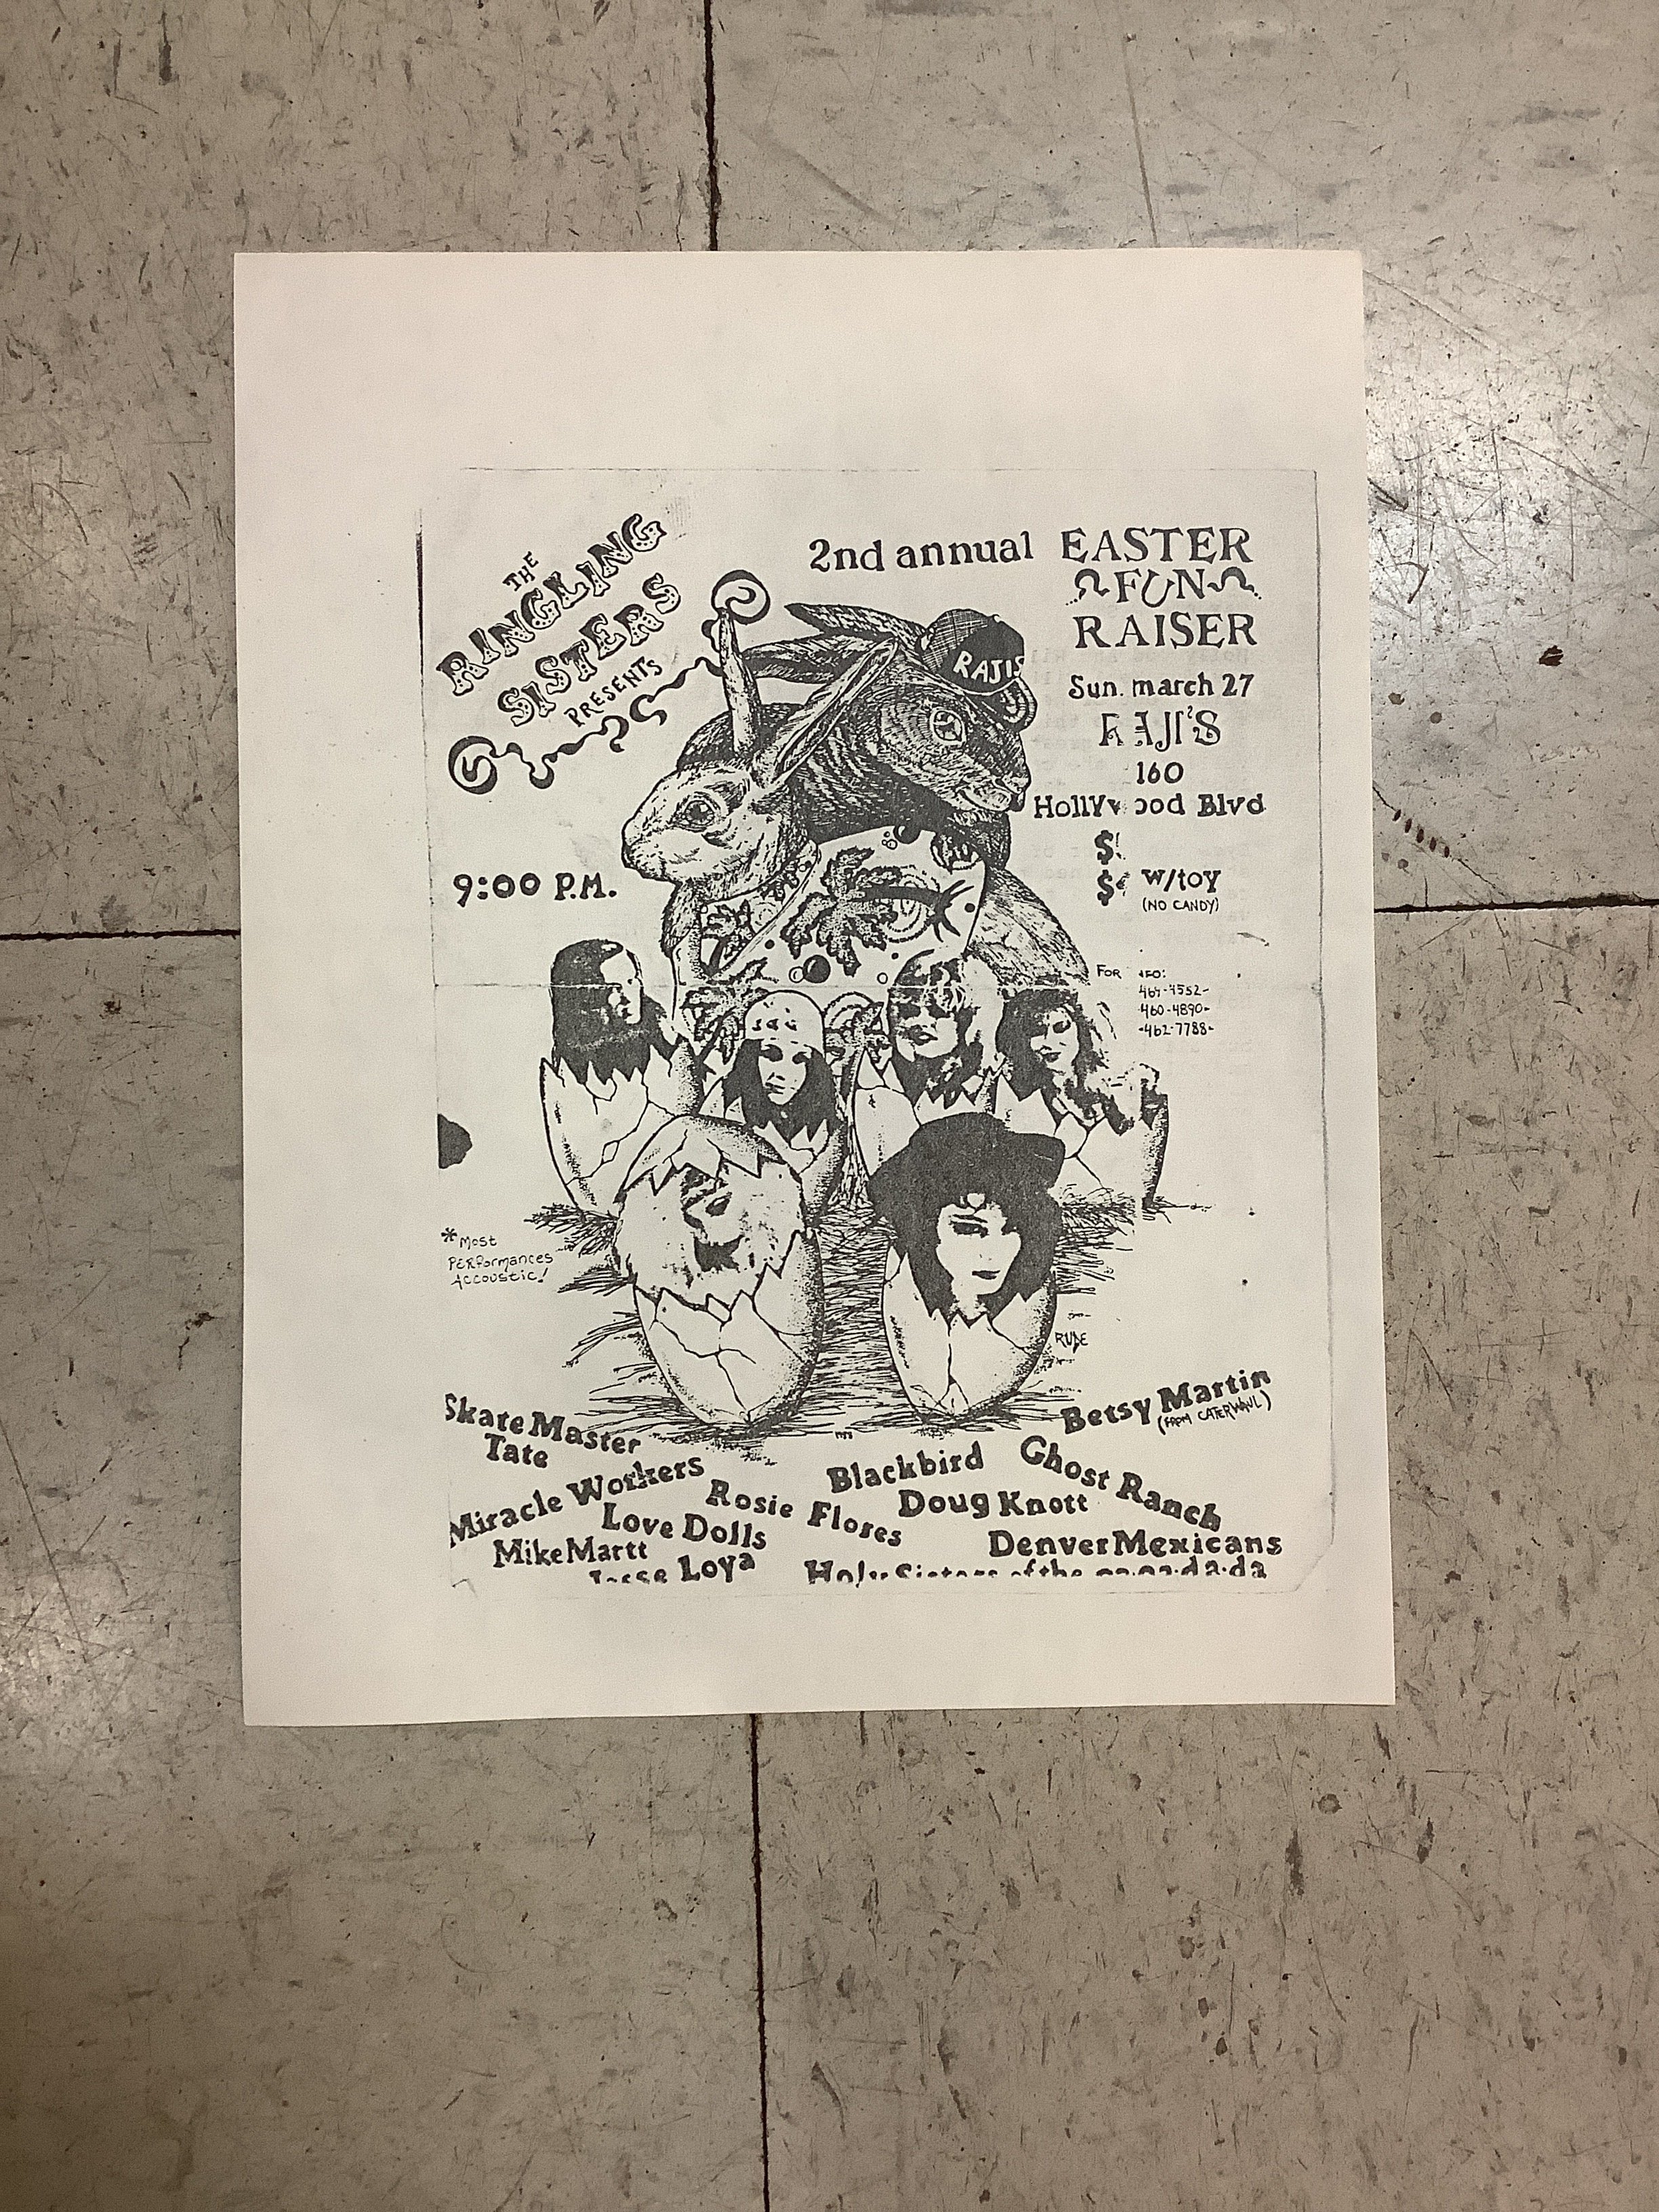 THE
RINGLING
SISTERS
PRESENTS
2nd annual EASTER
FUN
RAISER
RAJIS
Sun. march 27
RAJI'S
160
Hollywood Blvd
$
$ w/toy
(NO CANDY)
9:00 P.M.
FOR
464-4552-
460-4890-
-462-7788-
*Most
PERformances
Accoustic!
RUDE
Skate Master
Tate
Miracle Workers
Rosie Flores
Love Dolls
Mike Martt
Jesse Loya
Betsy Martin
(FROM CATERWAUL)
Blackbird
Ghost Ranch
Doug Knott
Denver Mexicans
Holy Sisters of the ga·ga·da·da